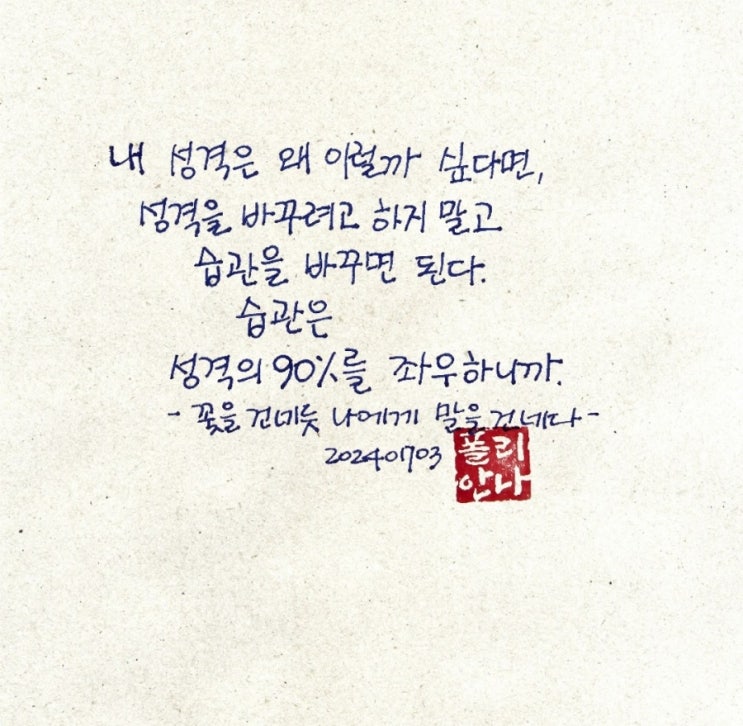 내 성격은 왜 이럴까 싶다면,
성격을 바꾸려고 하지 말고
습관을 바꾸면 된다.
습관은
성격의 90%를 좌우하니까.
- 꽃을 건네듯 나에게 말을 건네다 -
20240703
폴리
안나